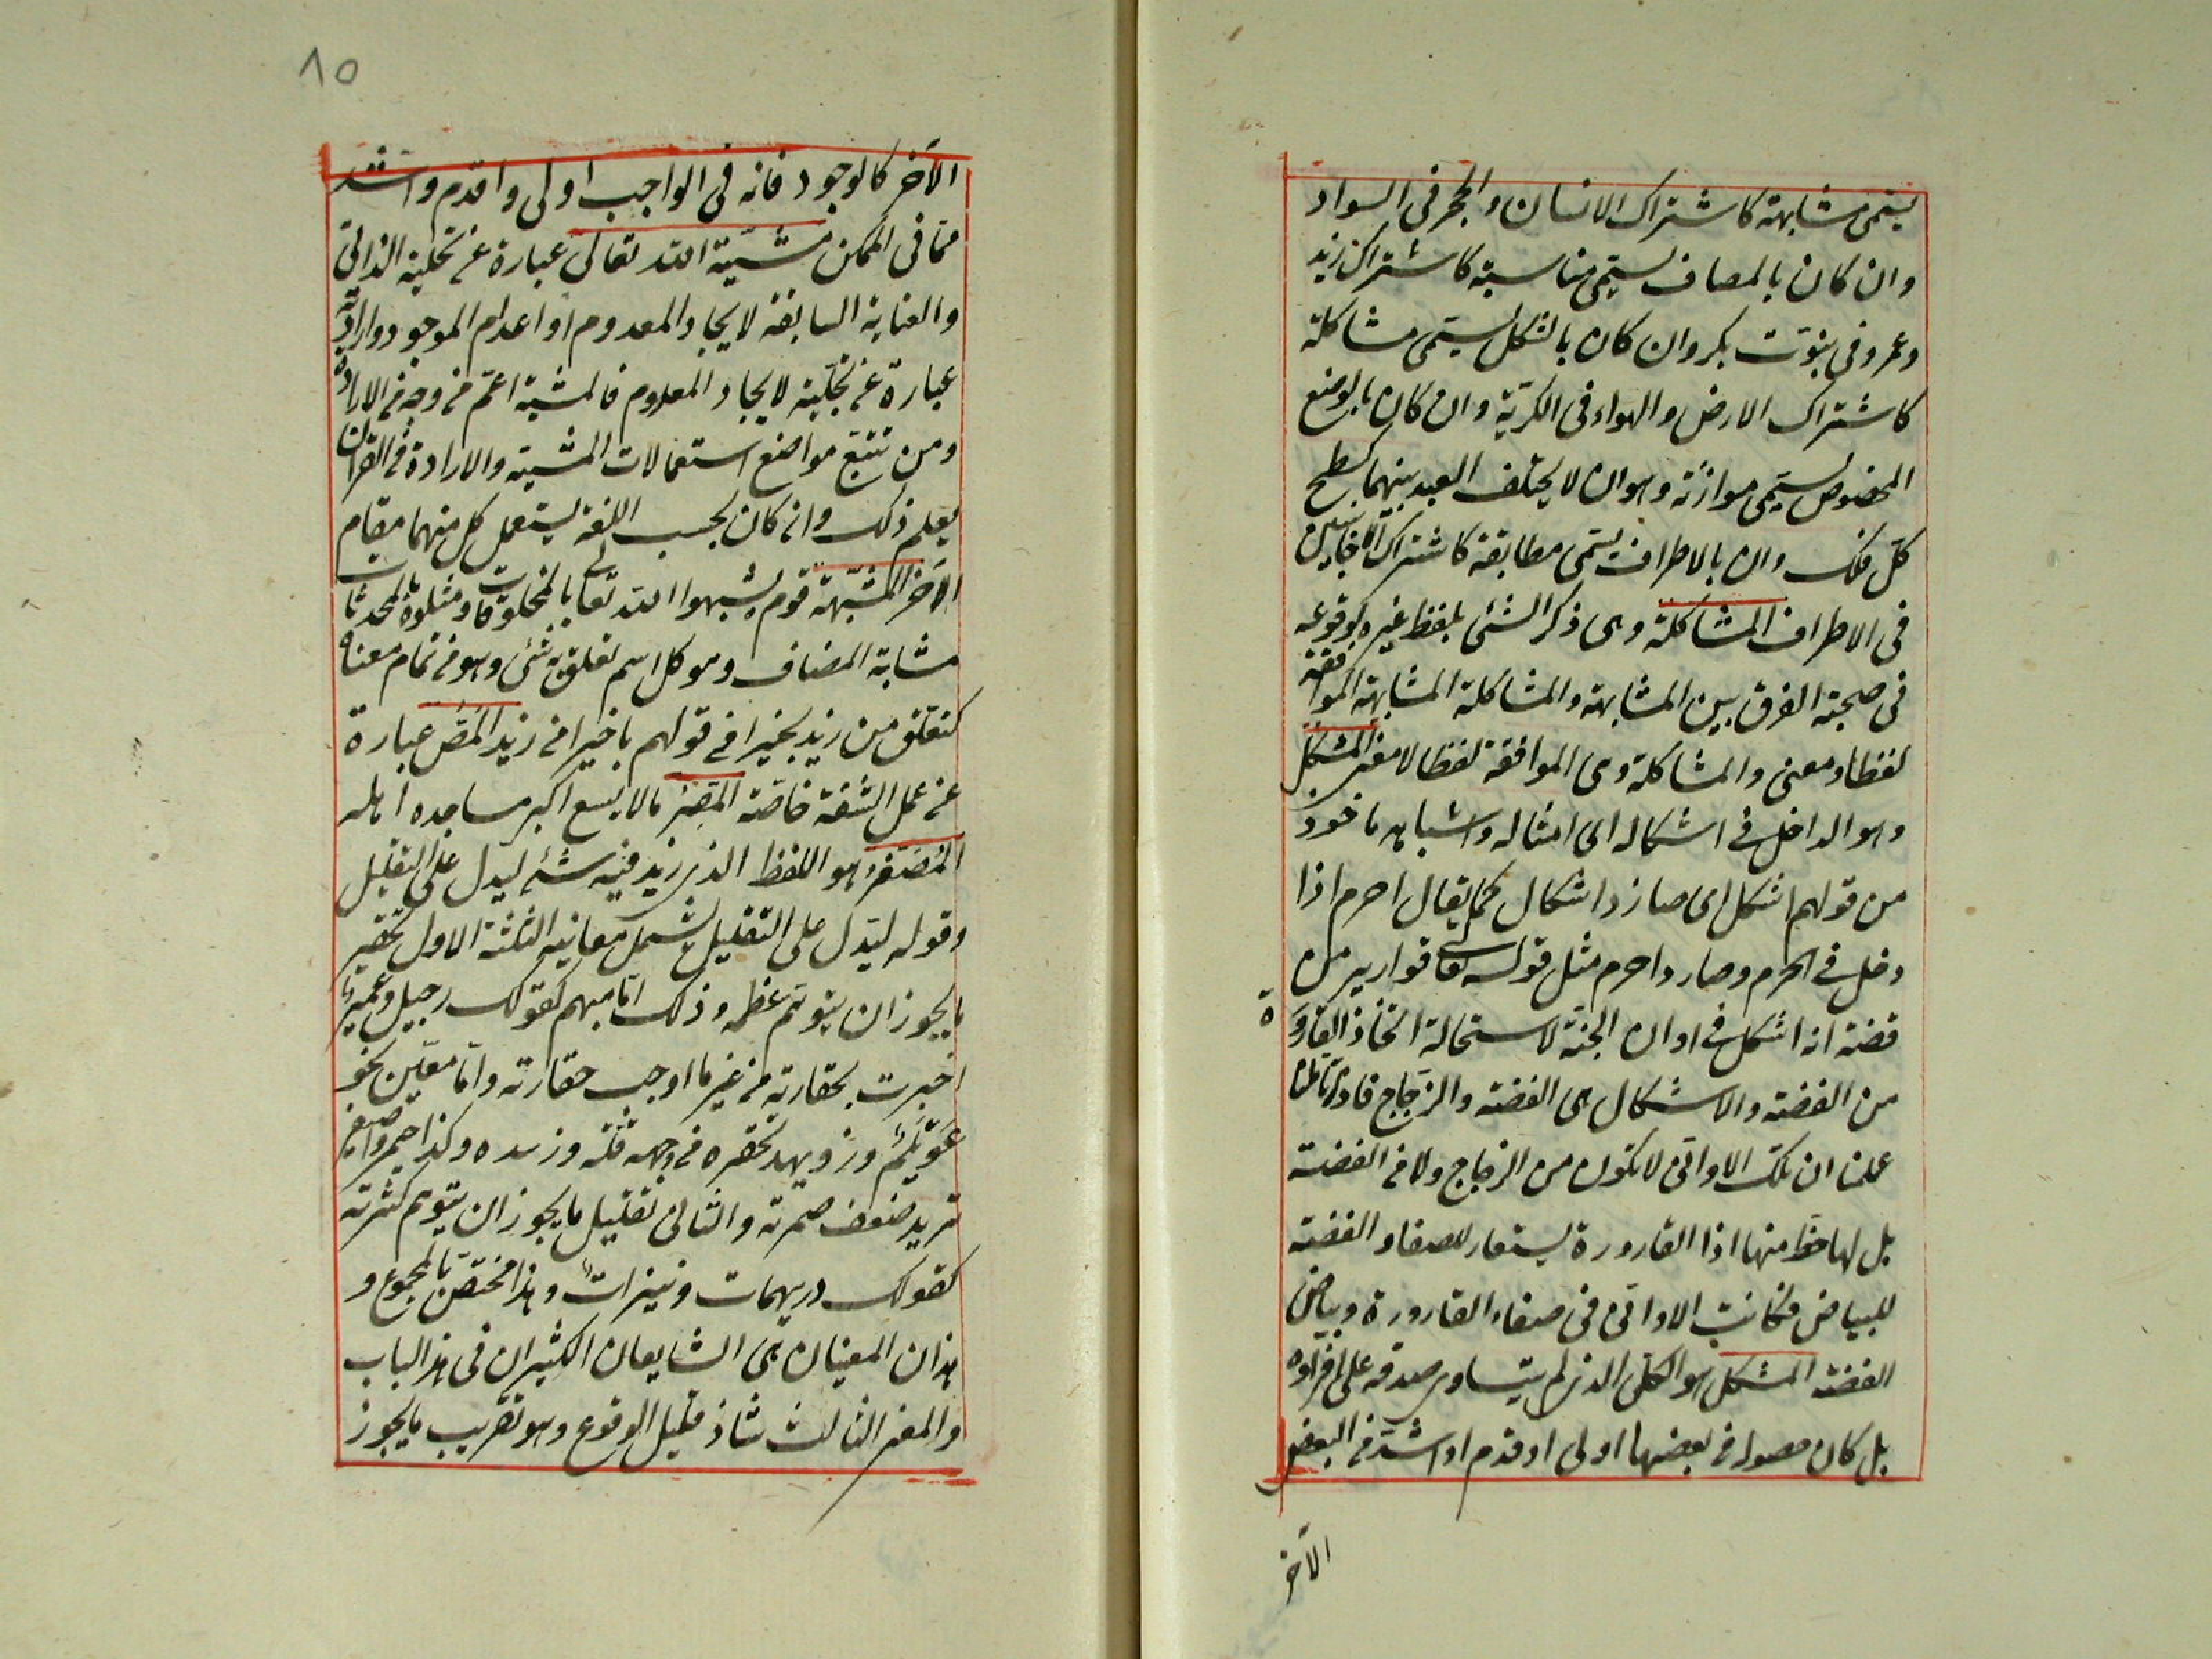 يسمى مشابهة كاشتراك الانسان والحجر فى السواد
وان كان بالمضاف يسمى مناسبة كاشتراك زيد
وعمرو فى بنوت بكر وان كان بالشكل يسمى مشاكلة
كاشتراك الارض والهواء فى الكرية وان كان بالوضع
المخصوص يسمى موازنة وهو ان لا يختلف البعد بينهما كسطح
كل فلك وان بالاطراف يسمى مطابقة كاشتراك الاجانين
فى الاطراف المشاكلة وهى ذكر الشئ بلفظ غيره لوقوعه
فى صحبته الفرق بين المشابهة والمشاكلة المشابهة الموافقة
لفظا ومعنى والمشاكلة وهى الموافقة لفظا لا معنى المشكل
وهو الداخل فى اشكاله اى امثاله واشباهه ماخوذ
من قولهم اشكل اى صار ذا اشكال كما يقال احرم اذا
دخل فى الحرم وصار ذا حرم مثل قوله تعا قوارير من
فضة انه اشكل فى اوانى الجنة لاستحالة اتخاذ القارورة
من الفضة والاشكال هى الفضة والزجاج فاذا تاملنا
علمنا ان تلك الاوانى لا تكون من الزجاج ولا من الفضة
بل لها حظ منها اذا القارورة يستعار للصفاء والفضة
للبياض فكانت الاوانى فى صفاء القارورة وبياض
الفضة المشكل هو الكلى الذى لم يتساوى صدقه على افراده
بل كان حصوله فى بعضها اولى او قدم او اشد من البعض
الآخر
١٥
الآخر كالوجود فانه فى الواجب اولى واقدم واشد
مما فى الممكن مشيّة الله تعالى عبارة عن تجلية الذاتى
والعناية السابقة لايجاد المعدوم او اعدام الموجود وارادته
عبارة عن تجلّيه لايجاد المعدوم فالمشية اعمّ من وجه من الارادة
ومن تتبع مواضع استعمالات المشية والارادة فى القرآن
يعلم ذلك وان كان بحسب اللغة يستعمل كل منهما مقام
الآخر المشبّهة قوم يشبهوا الله تعالى بالمخلوقات ومثلوه بالمحدثات
مشابة المضاف وهو كل اسم تعلق به شئ وهو من تمام معناه
كتعلق من زيد بخيرا فى قولهم يا خيرا من زيد المصّ عبارة
عن عمل الشفة خاصة المصر مالا يسع اكبر مساجده اهله
المصغر هو اللفظ الذى زيد فيه شئ ليدل على التقليل
وقوله ليدل على التقليل يشمل معانيه الثلثة الاول تحقير
ما يجوز ان يتوهم عظمه وذلك امّا مبهم كقولك رجيل وعمير
اخبرت بحقارته من غير ما اوجب حقارته وامّا معيّن نحو
عويلم وزويهد تحقره من جهة قلة وزهده وكذا حيمر واصيفر
تريد ضعف حمرته والثانى تقليل ما يجوز ان يتوهم كثرته
كقولك دريهمات ودنينرات وهذا مختص بالمجموع و
هذان المعنيان هى الشايعان الكثيران فى هذا الباب
والمعنى الثالث شاذ قليل الوقوع وهو تقريب ما يجوز